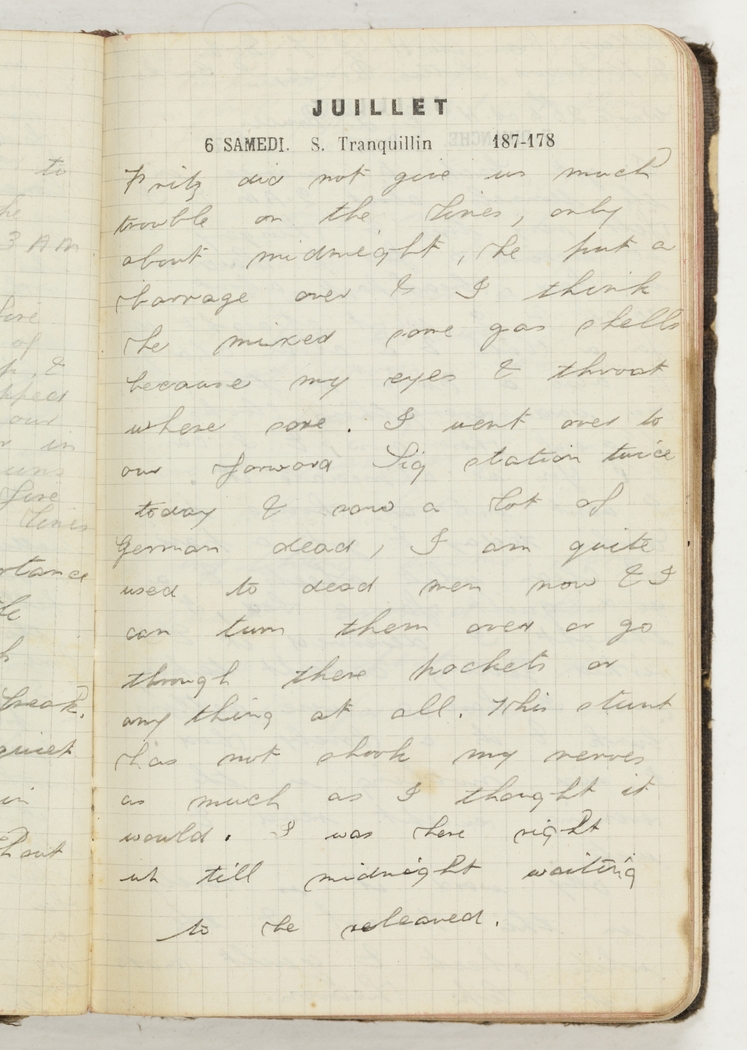 JUILLET
6 SAMEDI. S. Tranquillin 187-178
Fritz did not give us much
trouble on the lines, only
about midneight, he put a
barrage over & I think
he mixed some gas shells
because my eyes & throat
where sore. I went over to
our forward Sig station twice
today & saw a lot of
German dead, I am quite
used to dead men now & I
can turn them over or go
through there pockets or
any thing at all. This stunt
has not shook my nerves
as much as I thought it
would. I was here right
up till midnight waiting
to be releaved.
to
he
3 AM
fire
of
&
our
in
guns
fire
lines
break.
quiet
in